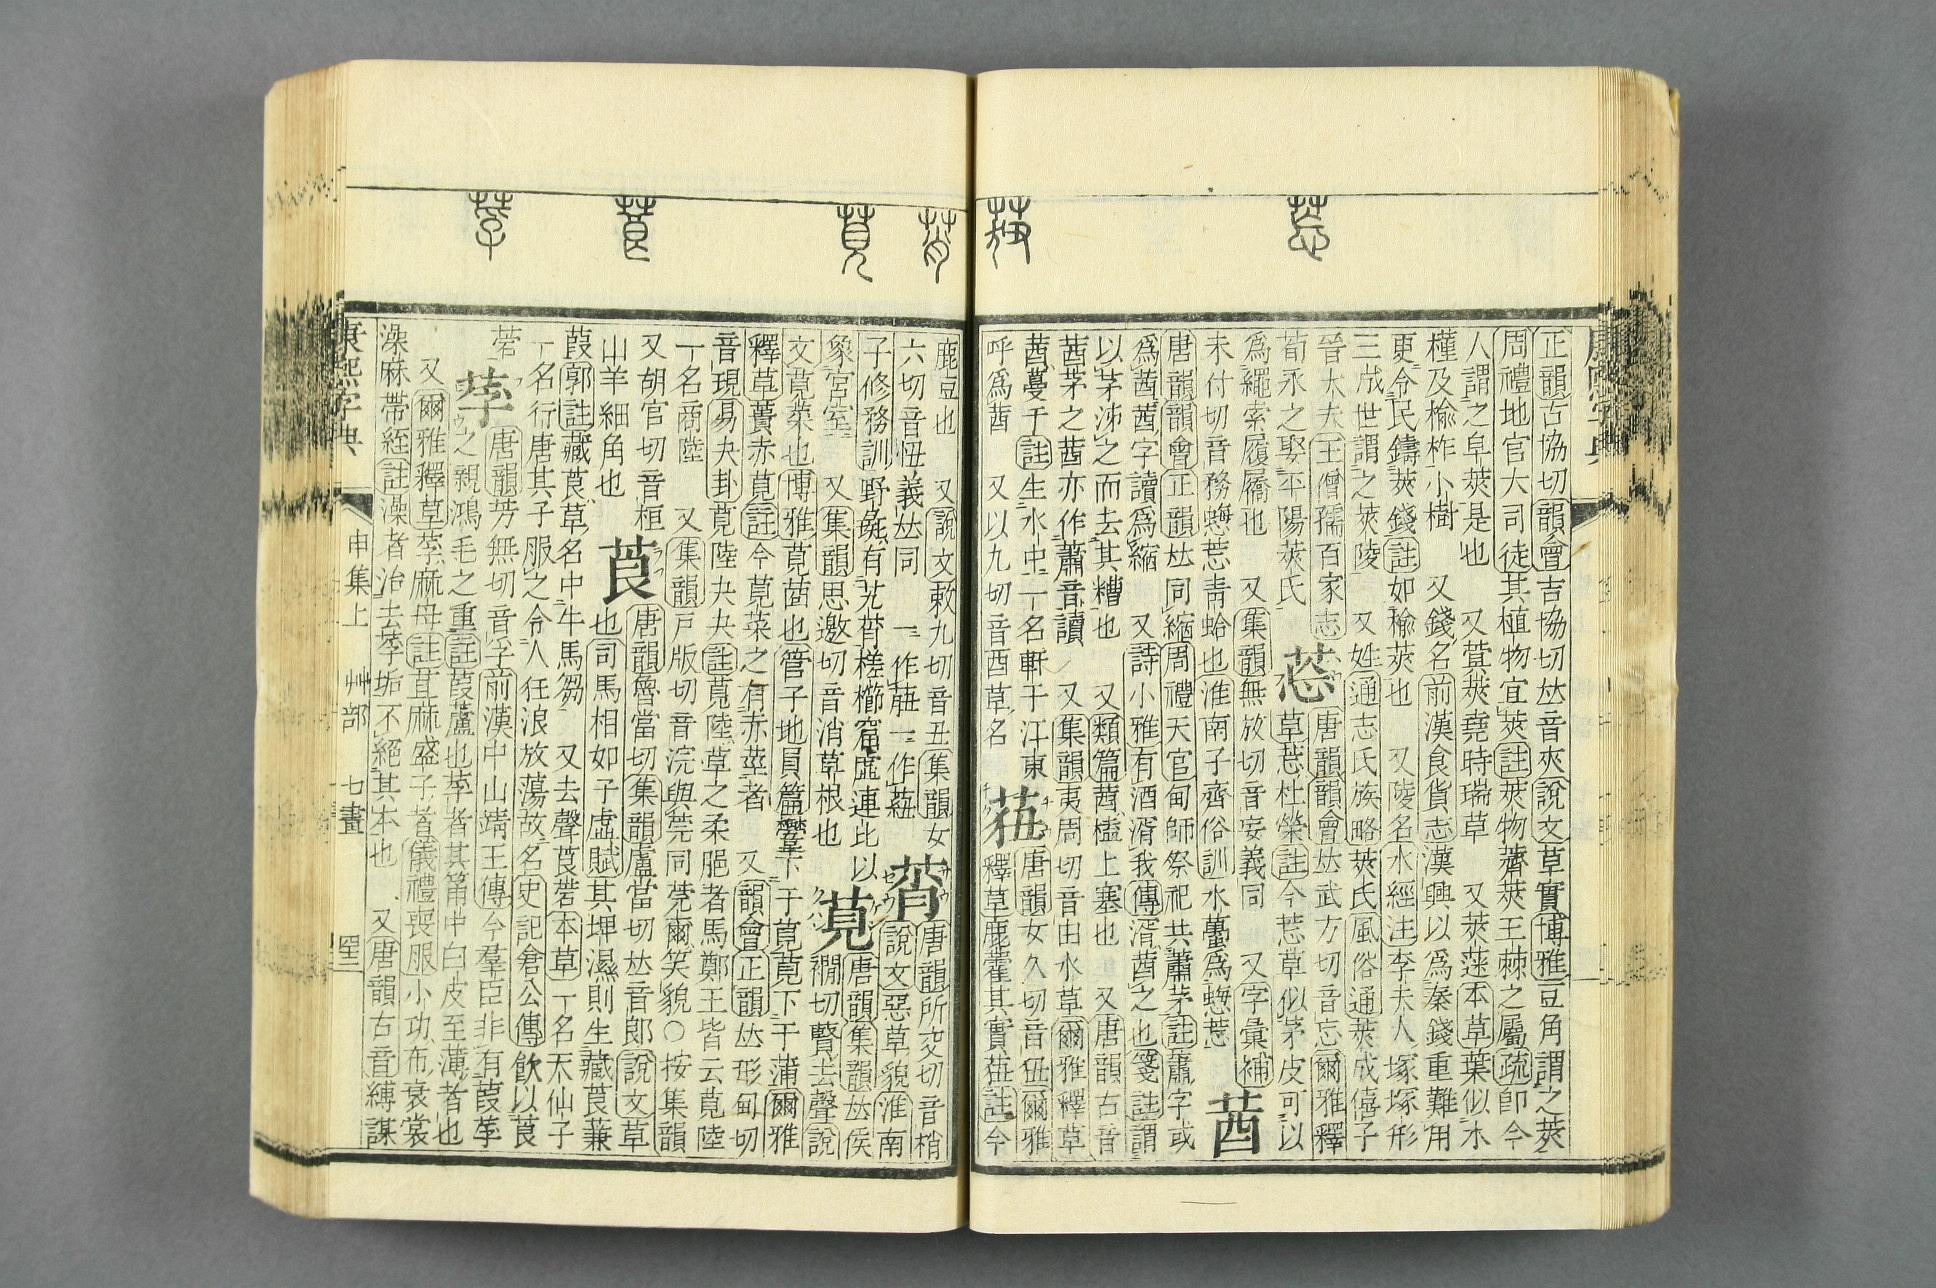 康熙字典
正韻古協切韻會吉協切𠀤音夾說文草實博雅豆角謂之莢
周禮地官大司徒其植物宜莢註莢物薺莢王棘之屬疏即今
人謂之皁莢是也 又蓂莢堯時瑞草 又莢蒾本草葉似木
槿及楡柞小樹 又錢名前漢食貨志漢興以爲秦錢重難用
更令民鑄莢錢註如楡莢也 又陵名水經注李夫人塚塚形
三成世謂之莢陵 又姓通志氏族略莢氏風俗通莢成僖子
晉大夫王僧孺百家志
荀永之娶平陽莢氏
莣
唐韻韻會𠀤武方切音忘爾雅釋
草莣杜榮註今莣草似茅皮可以
爲繩索履屩也 又集韻無放切音妄義同 又字彙補
未付切音務蟱莣靑蛤也淮南子齊俗訓水蠆爲蟱莣
莤
唐韻韻會正韻𠀤同縮周禮天官甸師祭祀共蕭茅註蕭字或
爲莤莤字讀爲縮 又詩小雅有酒湑我傳湑莤之也箋註謂
以茅泲之而去其糟也 又類篇莤榼上塞也 又唐韻古音
莤茅之莤亦作蕭音讀 又集韻夷周切音由水草爾雅釋草
莤蔓于註生水中一名軒于江東
呼爲莤 又以九切音酉草名
莥
唐韻女久切音忸爾雅
釋草鹿藿其實莥註今
鹿豆也 又說文敕九切音丑集韻女
六切音忸義𠀤同 一作 一作
莦
唐韻所交切音梢
說文惡草貌淮南
子修務訓野彘有艽莦槎櫛窟虛連比以
象宮室 又集韻思邀切音消草根也
莧
唐韻集韻𠀤侯
襉切賢去聲說
文莧菜也博雅莧 也管子地員篇 下于莧莧下于蒲爾雅
釋草蕢赤莧註今莧菜之有赤莖者 又韻會正韻𠀤形甸切
音現易夬卦莧陸夬夬註莧陸草之柔脃者馬鄭王皆云莧陸
一名商陸 又集韻戸版切音浣與莞同莞爾笑貌○按集韻
又胡官切音桓
山羊細角也
莨
唐韻魯當切集韻盧當切𠀤音郎說文草
也司馬相如子虛賦其埤濕則生藏莨蒹
葭郭註藏莨草名中牛馬芻 又去聲莨菪本草一名天仙子
一名行唐其子服之令人狂浪放蕩故名史記倉公傳飮以莨
菪
莩
唐韻芳無切音孚前漢中山靖王傳今羣臣非有葭莩
之親鴻毛之重註葭蘆也莩者其筩中白皮至薄者也
又爾雅釋草莩麻母註苴麻盛子者儀禮喪服小功布衰裳
澡麻帶絰註澡者治去莩垢不絕其本也 又唐韻古音縛謀
康熙字典 申集上 艸部 七畫